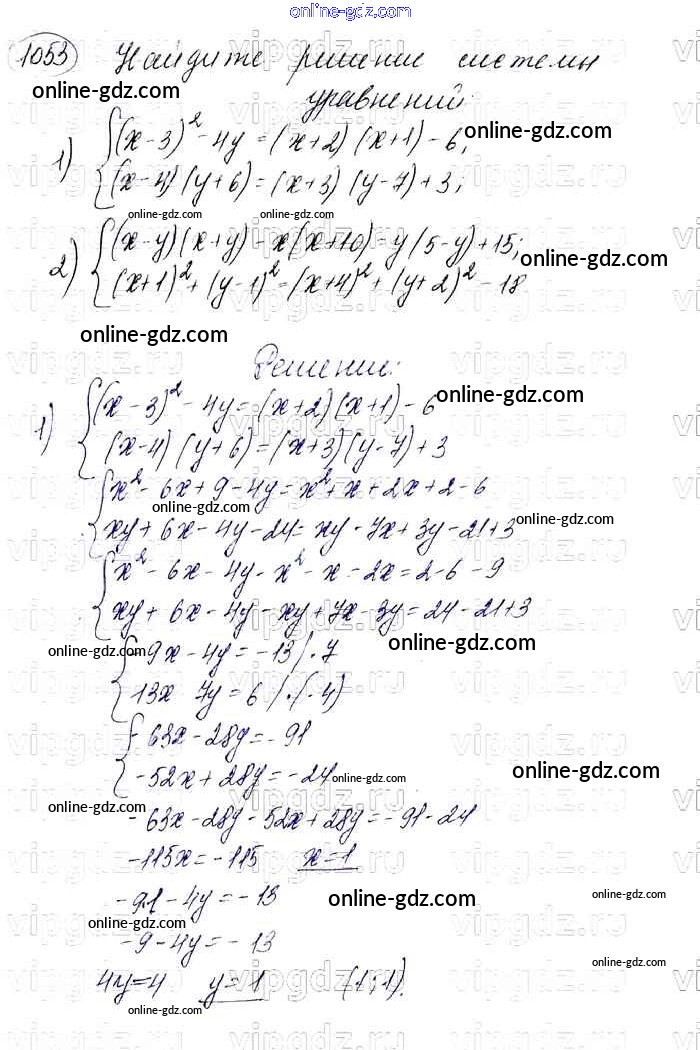 online-gdz.com
1053 Найдите решение системы
online-gdz.com
уравнений:
1) {(x-3)² - 4y = (x+2)(x+1) - 6, online-gdz.com
(x-4)(y+6) = (x+3)(y-7) + 3;
online-gdz.com online-gdz.com
2) {(x-y)(x+y) - x(x+10) = y(5-y) + 15; online-gdz.com
(x+1)² + (y-1)² = (x+4)² + (y+2)² - 18
online-gdz.com
vipgdz.ru
Решение:
1) {(x-3)² - 4y = (x+2)(x+1) - 6 online-gdz.com
(x-4)(y+6) = (x+3)(y-7) + 3
{x² - 6x + 9 - 4y = x² + x + 2x + 2 - 6
online-gdz.com online-gdz.com
xy + 6x - 4y - 24 = xy - 7x + 3y - 21 + 3
{x² - 6x - 4y - x² - x - 2x = 2 - 6 - 9
xy + 6x - 4y - xy + 7x - 3y = 24 - 21 + 3
online-gdz.com online-gdz.com
{-9x - 4y = -13 | · 7
13x 7y = 6 | · (-4)
{- 63x - 28y = - 91
-52x + 28y = -24 online-gdz.com online-gdz.com
online-gdz.com
- 63x - 28y - 52x + 28y = -91 - 24
-115x = -115 x = 1
-9·1 - 4y = -13 online-gdz.com online-gdz.com
online-gdz.com
-9 - 4y = - 13
online-gdz.com
4y = 4 y = 1 (1; 1).
vipgdz.ru